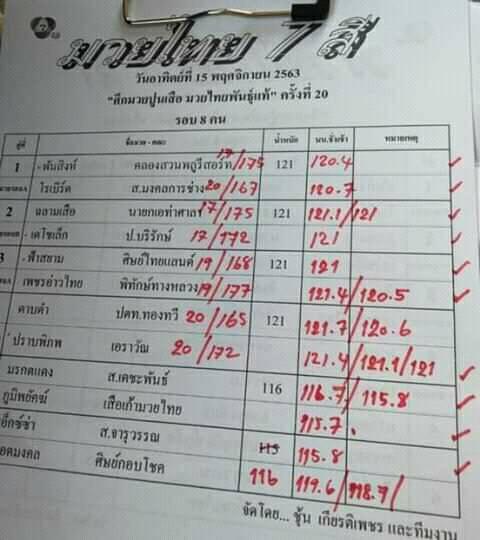 มวยไทย 7 สี
วันอาทิตย์ที่ 15 พฤศจิกายน 2563
"ศึกมวยปูนเสือ มวยไทยพันธุ์แท้" ครั้งที่ 20
รอบ 8 คน
คู่ที่ ชื่อมวย - คณะ น้ำหนัก นน.ชั่งเช้า หมายเหตุ
1 - พันสิงห์ คลองสวนพลูรีสอร์ท 17/175 121 120.4
โรเบิร์ต ส.มงคลการช่าง 20/167 120.7
2 ฉลามเสือ นายกเอท่าศาลา 17/175 121 121.1/121
- เดโชเล็ก ป.บริรักษ์ 17/172 121
3 - ฟ้าสยาม ศิษย์ไทยแลนด์ 19/168 121 121
เพชรอ่าวไทย พิทักษ์ทางหลวง 19/177 121.4/120.5
ดาบดำ ปตท.ทองทวี 20/165 121 121.7/120.6
ปราบพิภพ เอราวัณ 20/172 121.4/121.1/121
มรกตแดง ส.เดชะพันธ์ 116 116.7/115.8
ภูมิพยัคฆ์ เสือเก้ามวยไทย 115.7.
เอ็กซ์ซ่า ส.จารุวรรณ 115 115.8
ยอดมงคล ศิษย์กอบโชค 116 119.6/118.7/
จัดโดย... ชุ้น เกียรติเพชร และทีมงาน